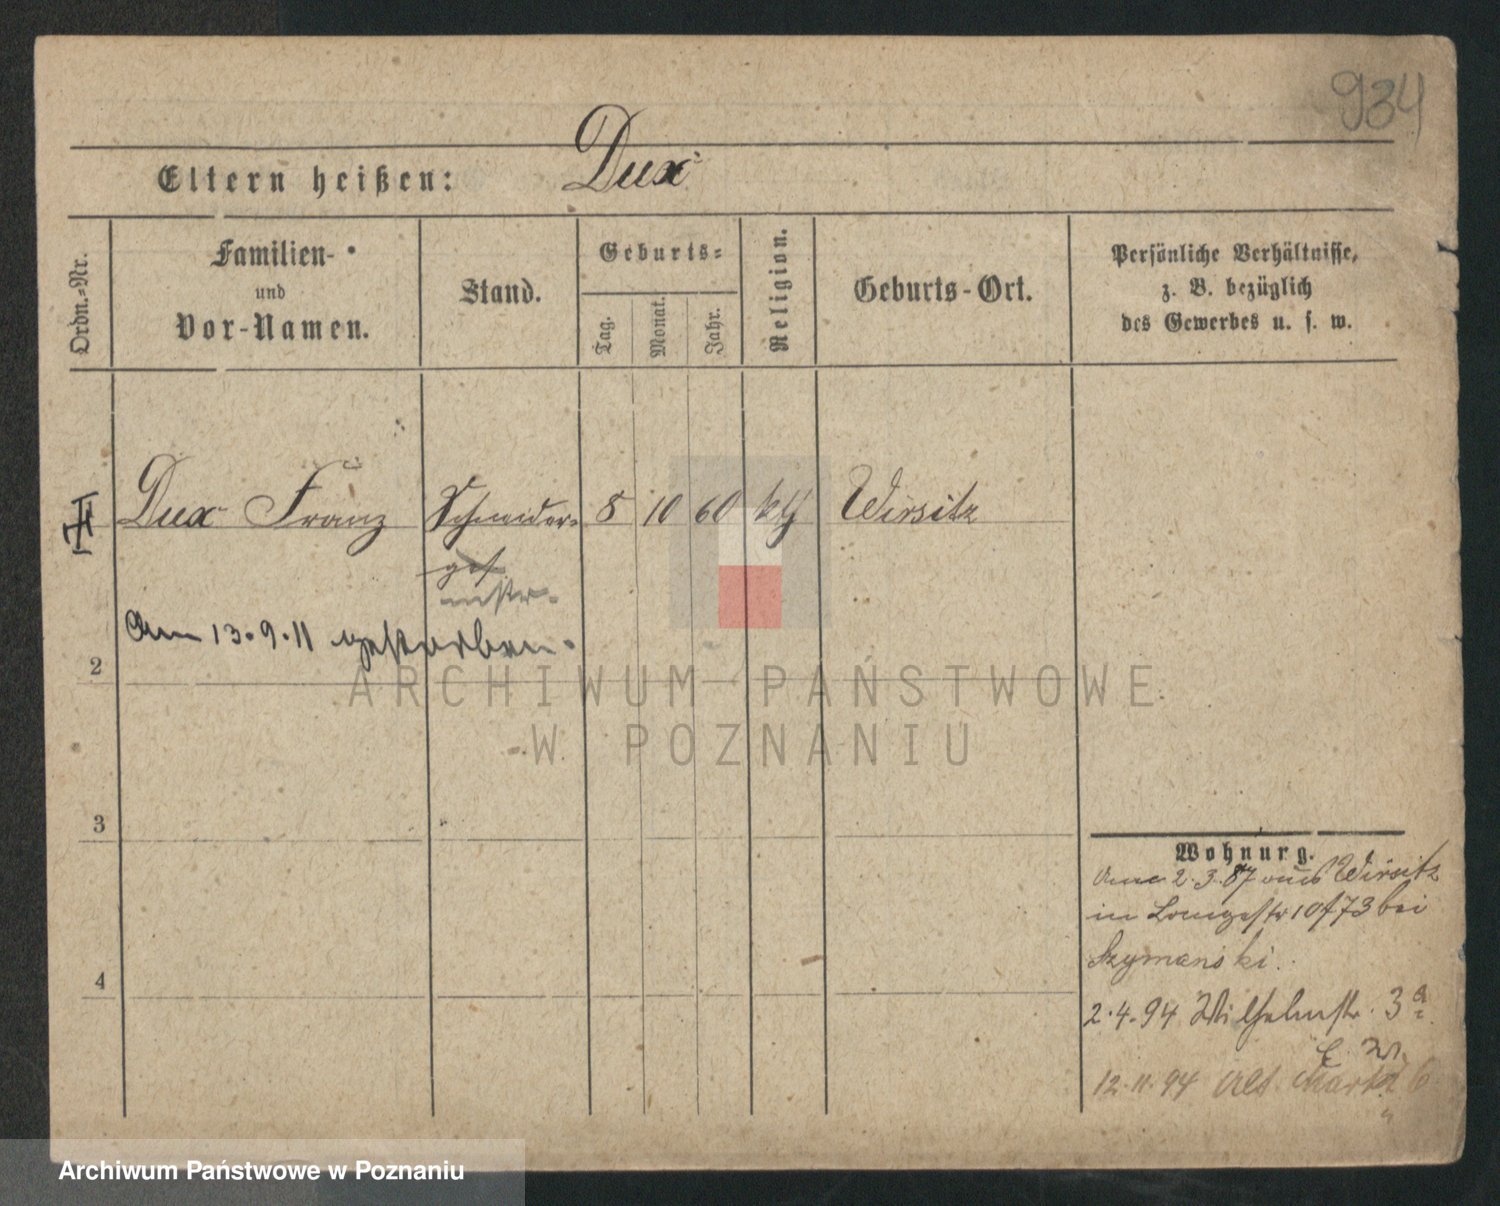 934
Eltern heißen: Dux
Ordn.-Nr.
Familien-
und
Vor-Namen.
Stand.
Geburts-
Tag.
Monat.
Jahr.
Religion.
Geburts-Ort.
Persönliche Verhältnisse,
z. B. bezüglich
des Gewerbes u. s. w.
Dux Franz Schneider- 8 10 60 kth Wirsitz
ges
mstr.
Am 13.9.11 gestorben.
2
3
4
Wohnung.
2.3.87 aus Wirsitz
in Langestr 10/73 bei
Szymanski.
2.4.94 Wilhelmstr. 3a
12.11.94 Alt. Markt 6
ARCHIWUM PAŃSTWOWE
W POZNANIU
Archiwum Państwowe w Poznaniu